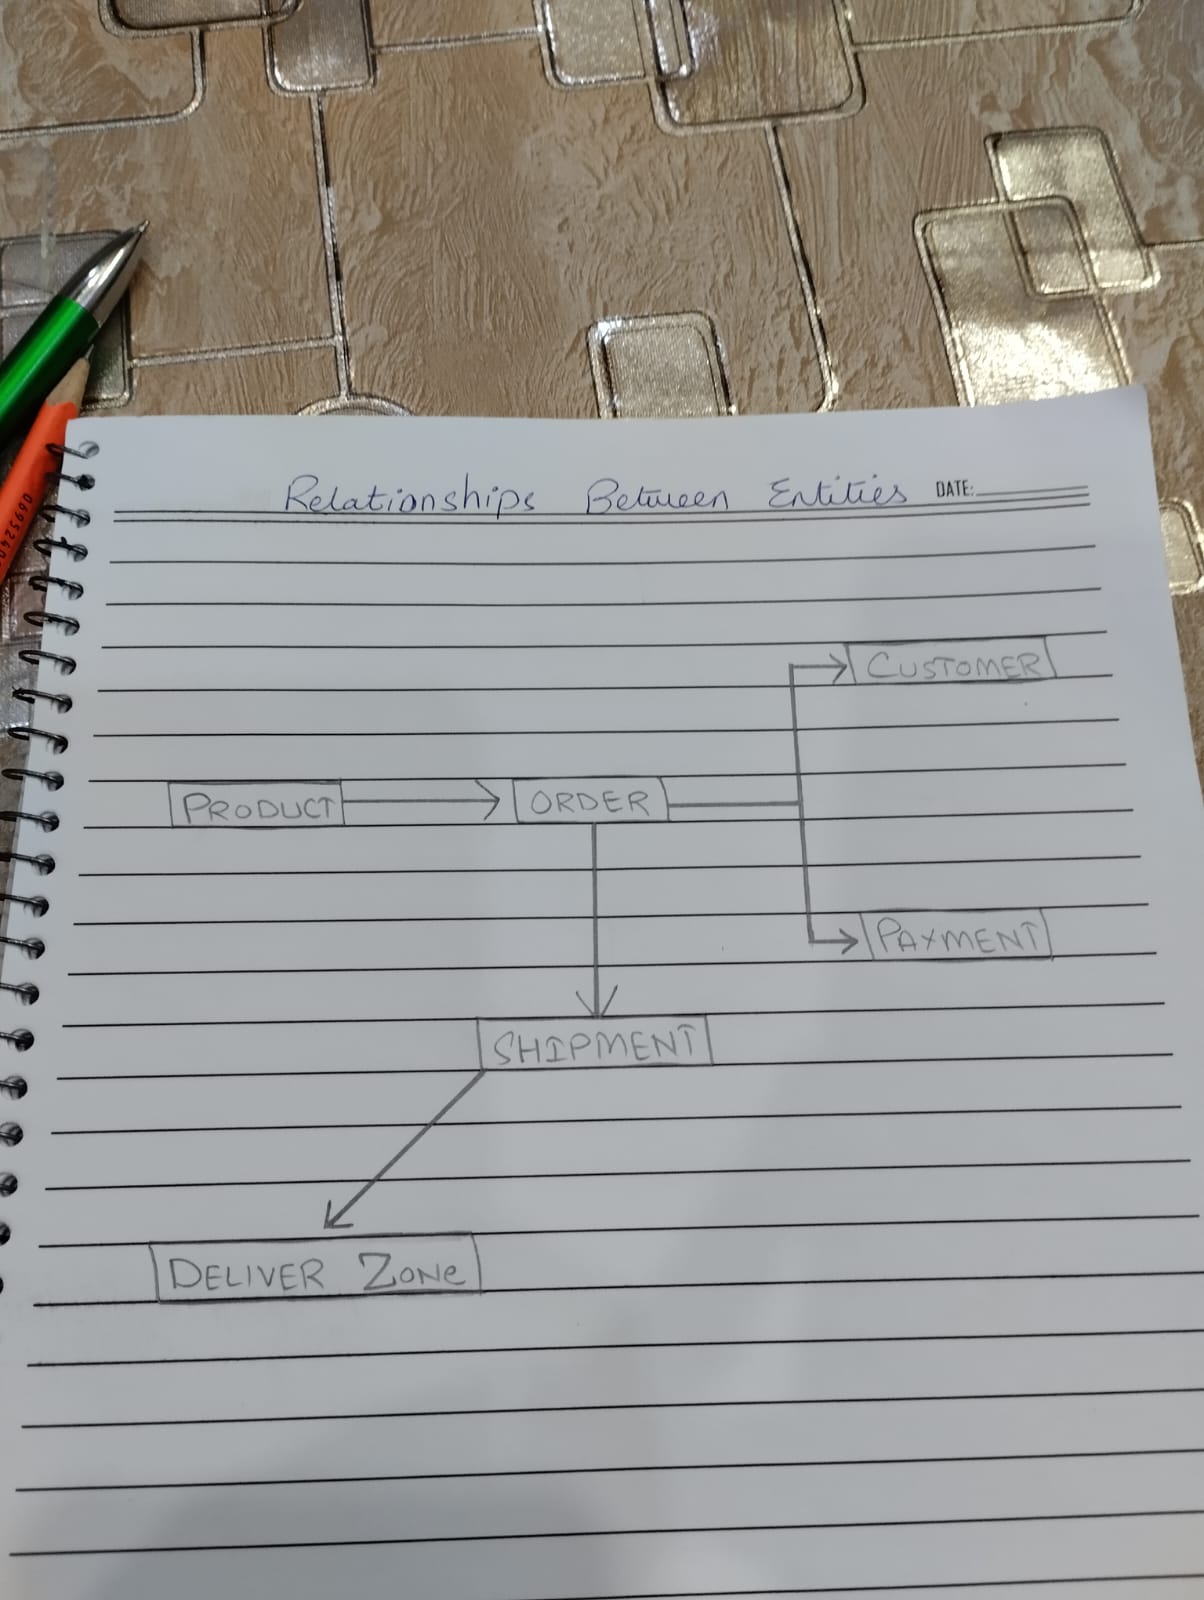 Relationships Between Entities DATE:
CUSTOMER
PRODUCT ORDER
PAYMENT
SHIPMENT
DELIVER ZONE